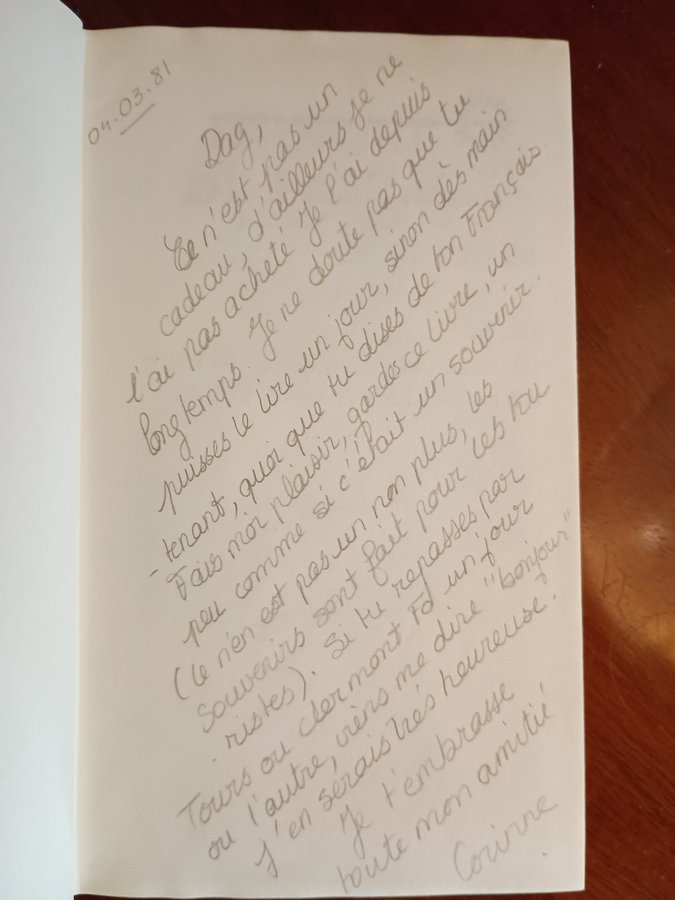 04.03.81
Dag,
Ce n'est pas un
cadeau, d'ailleurs je ne
l'ai pas acheté Je l'ai depuis
longtemps. Je ne doute pas que tu
puisses le lire un jour, sinon dès main
-tenant, quoi que tu dises de ton Français.
Fais moi plaisir, gardes ce livre, un
peu comme si c'était un souvenir.
(Ce n'en est pas un non plus, les
souvenirs sont fait pour les tou
-ristes). Si tu repasses par
Tours ou Clermont Fd un jour
ou l'autre, viens me dire "bonjour"
J'en serais très heureuse.
Je t'embrasse
toute mon amitié
Corinne